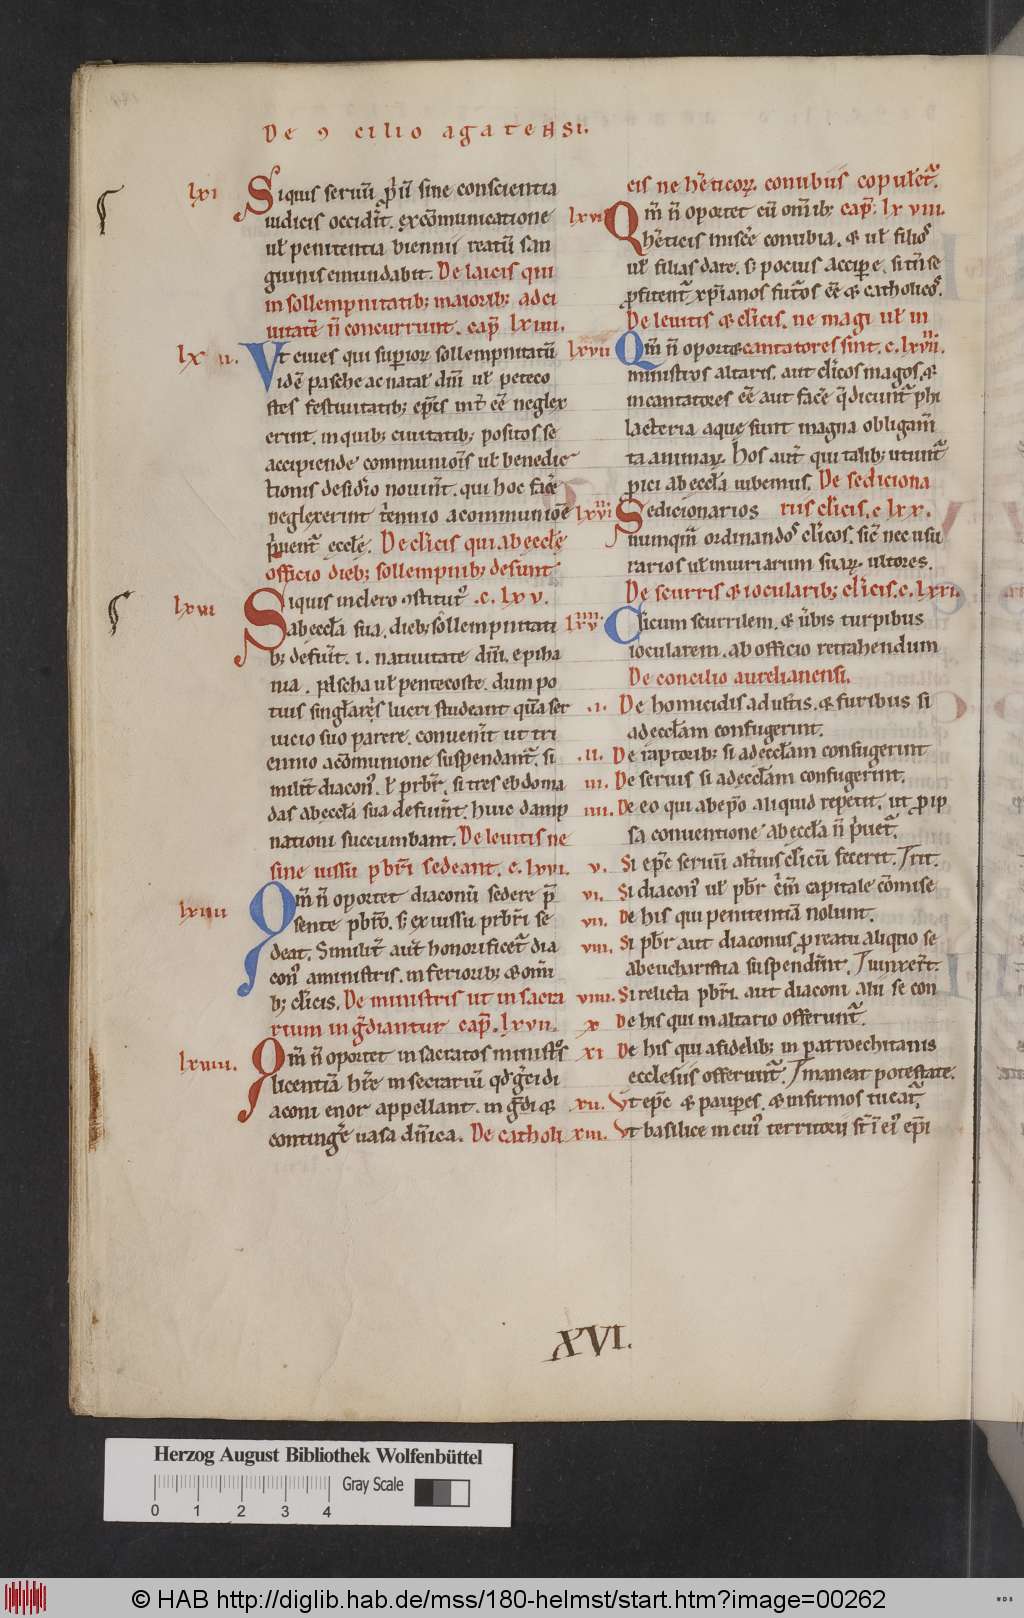 De ꝯ cilio agatensi.
lxi
Siquis seruū ꝓp̄ū sine conscientia
iudicis occid̾it. excōmunicatione
uł penitentia biennii reatū san
guinis emundabit. De laicis qui
in sollempnitatib; maiorib; ad ci
uitatē n̄ concurrunt. cap̄ lxiiii.
lx ii.
Vt ciues qui superioꝝ sollempnitatū
idē pasche ac natał dn̄i uł peteco
stes festiuitatib; ep̄is int̾ eē neglex
erint. in quib; ciuitatib; positos se
accipiende communiois̄ uł benedic
tionis desid̾io nouīt. qui hoc face̾
neglexerint t̾ennio a communioē
p̾uent᷑ eccłe. De cl̾icis qui ab eccłe
officio dieb; sollempnib; desunt
lxiii
Siquis in clero ꝯstitut᷒ .c. lxv.
ab eccła sua. dieb; sollempnitati
b; defuīt. i. natiuitate dn̄i. epipha
nia. pascha uł pentecoste. dum po
tius singłares̾ lucri studeant quā ser
uicio suo parere. conuenīt ut tri
ennio a cōmunione suspendant᷑. si
milit̾ diacon᷒. ł prb̄r. si tres ebdoma
das ab eccła sua defuīt. huic damp
nationi succumbant. De leuitis ne
sine iussu pb̄ri sedeant. c. lxvi.
lxiiii
Qm̄ n̄ oportet diaconū sedere p̄
sente pb̄ro. s; ex iussu prb̄ri se
deat. Similit̾ aut̄ honorificet᷑ dia
con᷒ a ministris. inferiorib; & omī
b; cl̾icis. De ministris ut in sacra
rium ingrediantur cap̄. lxvii.
lxviii.
Qm̄ n̄ oportet in sacratos ministros
licentiā habere in secrariū qd̾ greci di
aconi enor appellant. ingredi &
contingere uasa dn̄ica. De catholi
cis ne hereticoꝝ conubiis copulet᷑.
lxvi
Qm̄ n̄ oportet cū om̄ib; cap̄. lxviii.
hereticis miscere conubia. & uł filios
uł filias dare. s; pocius accipere. si tn̄ se
ꝓfitent᷑ xp̄ianos futuros eē & catholicos.
De leuitis & cl̾icis. ne magi uł in
lxvii
Qm̄ n̄ oport& cantatores sint. c. lxviiii.
ministros altaris. aut cl̾icos magos. &
incantatores eē aut facere que dicunt᷑ phi
lacteria aque sunt magna obligam̄
ta animaꝝ. Hos aut̄ qui talib; utunt᷑
ꝓici ab eccła iubemus. De sediciona
lxviii
Sedicionarios riis cl̾icis. c lxx.
numquā ordinandos cl̾icos. sic nec usu
rarios uł iniuriarum suaꝝ ultores.
De scurris & iocularib; cl̾icis. c. lxxi.
lxviiii
Clericum scurrilem. & u̾bis turpibus
iocularem. ab officio retrahendum
De concilio aurelianensi.
.i. De homicidis adulteris. & furibus si
ad eccłam confugerint.
.ii. De raptorib; si ad eccłam confugerint
iii. De seruis si ad eccłam confugerint.
iiii. De eo qui ab ep̄o aliquid repetit. ut ꝓ ip
sa conuentione ab eccła n̄ p̾uet᷑.
v. Si ep̄c seruū alt̾ius cl̾icū fecerit.
vi. Si diacon᷒ uł pb̄r crim̄ capitale cōmise
vii. De his qui penitentiā nolunt.
viii. Si pb̄r aut diaconus ꝓ reatu aliquo se
ab eucharistia suspenderint.
viiii. Si relicta pb̄ri. aut diaconi alii se con
x De his qui in altario offerunt᷑.
xi De his qui a fidelib; in parroechitanis
ecclesiis offerunt᷑. maneat potestate.
xii. Vt ep̄c & pauperes. & infirmos tueat᷑
xiii. Vt basilice in cui᷒ territorii st̄ i ei᷒ ep̄i
XVI.
Herzog August Bibliothek Wolfenbüttel
0 1 2 3 4 Gray Scale
© HAB http://diglib.hab.de/mss/180-helmst/start.htm?image=00262